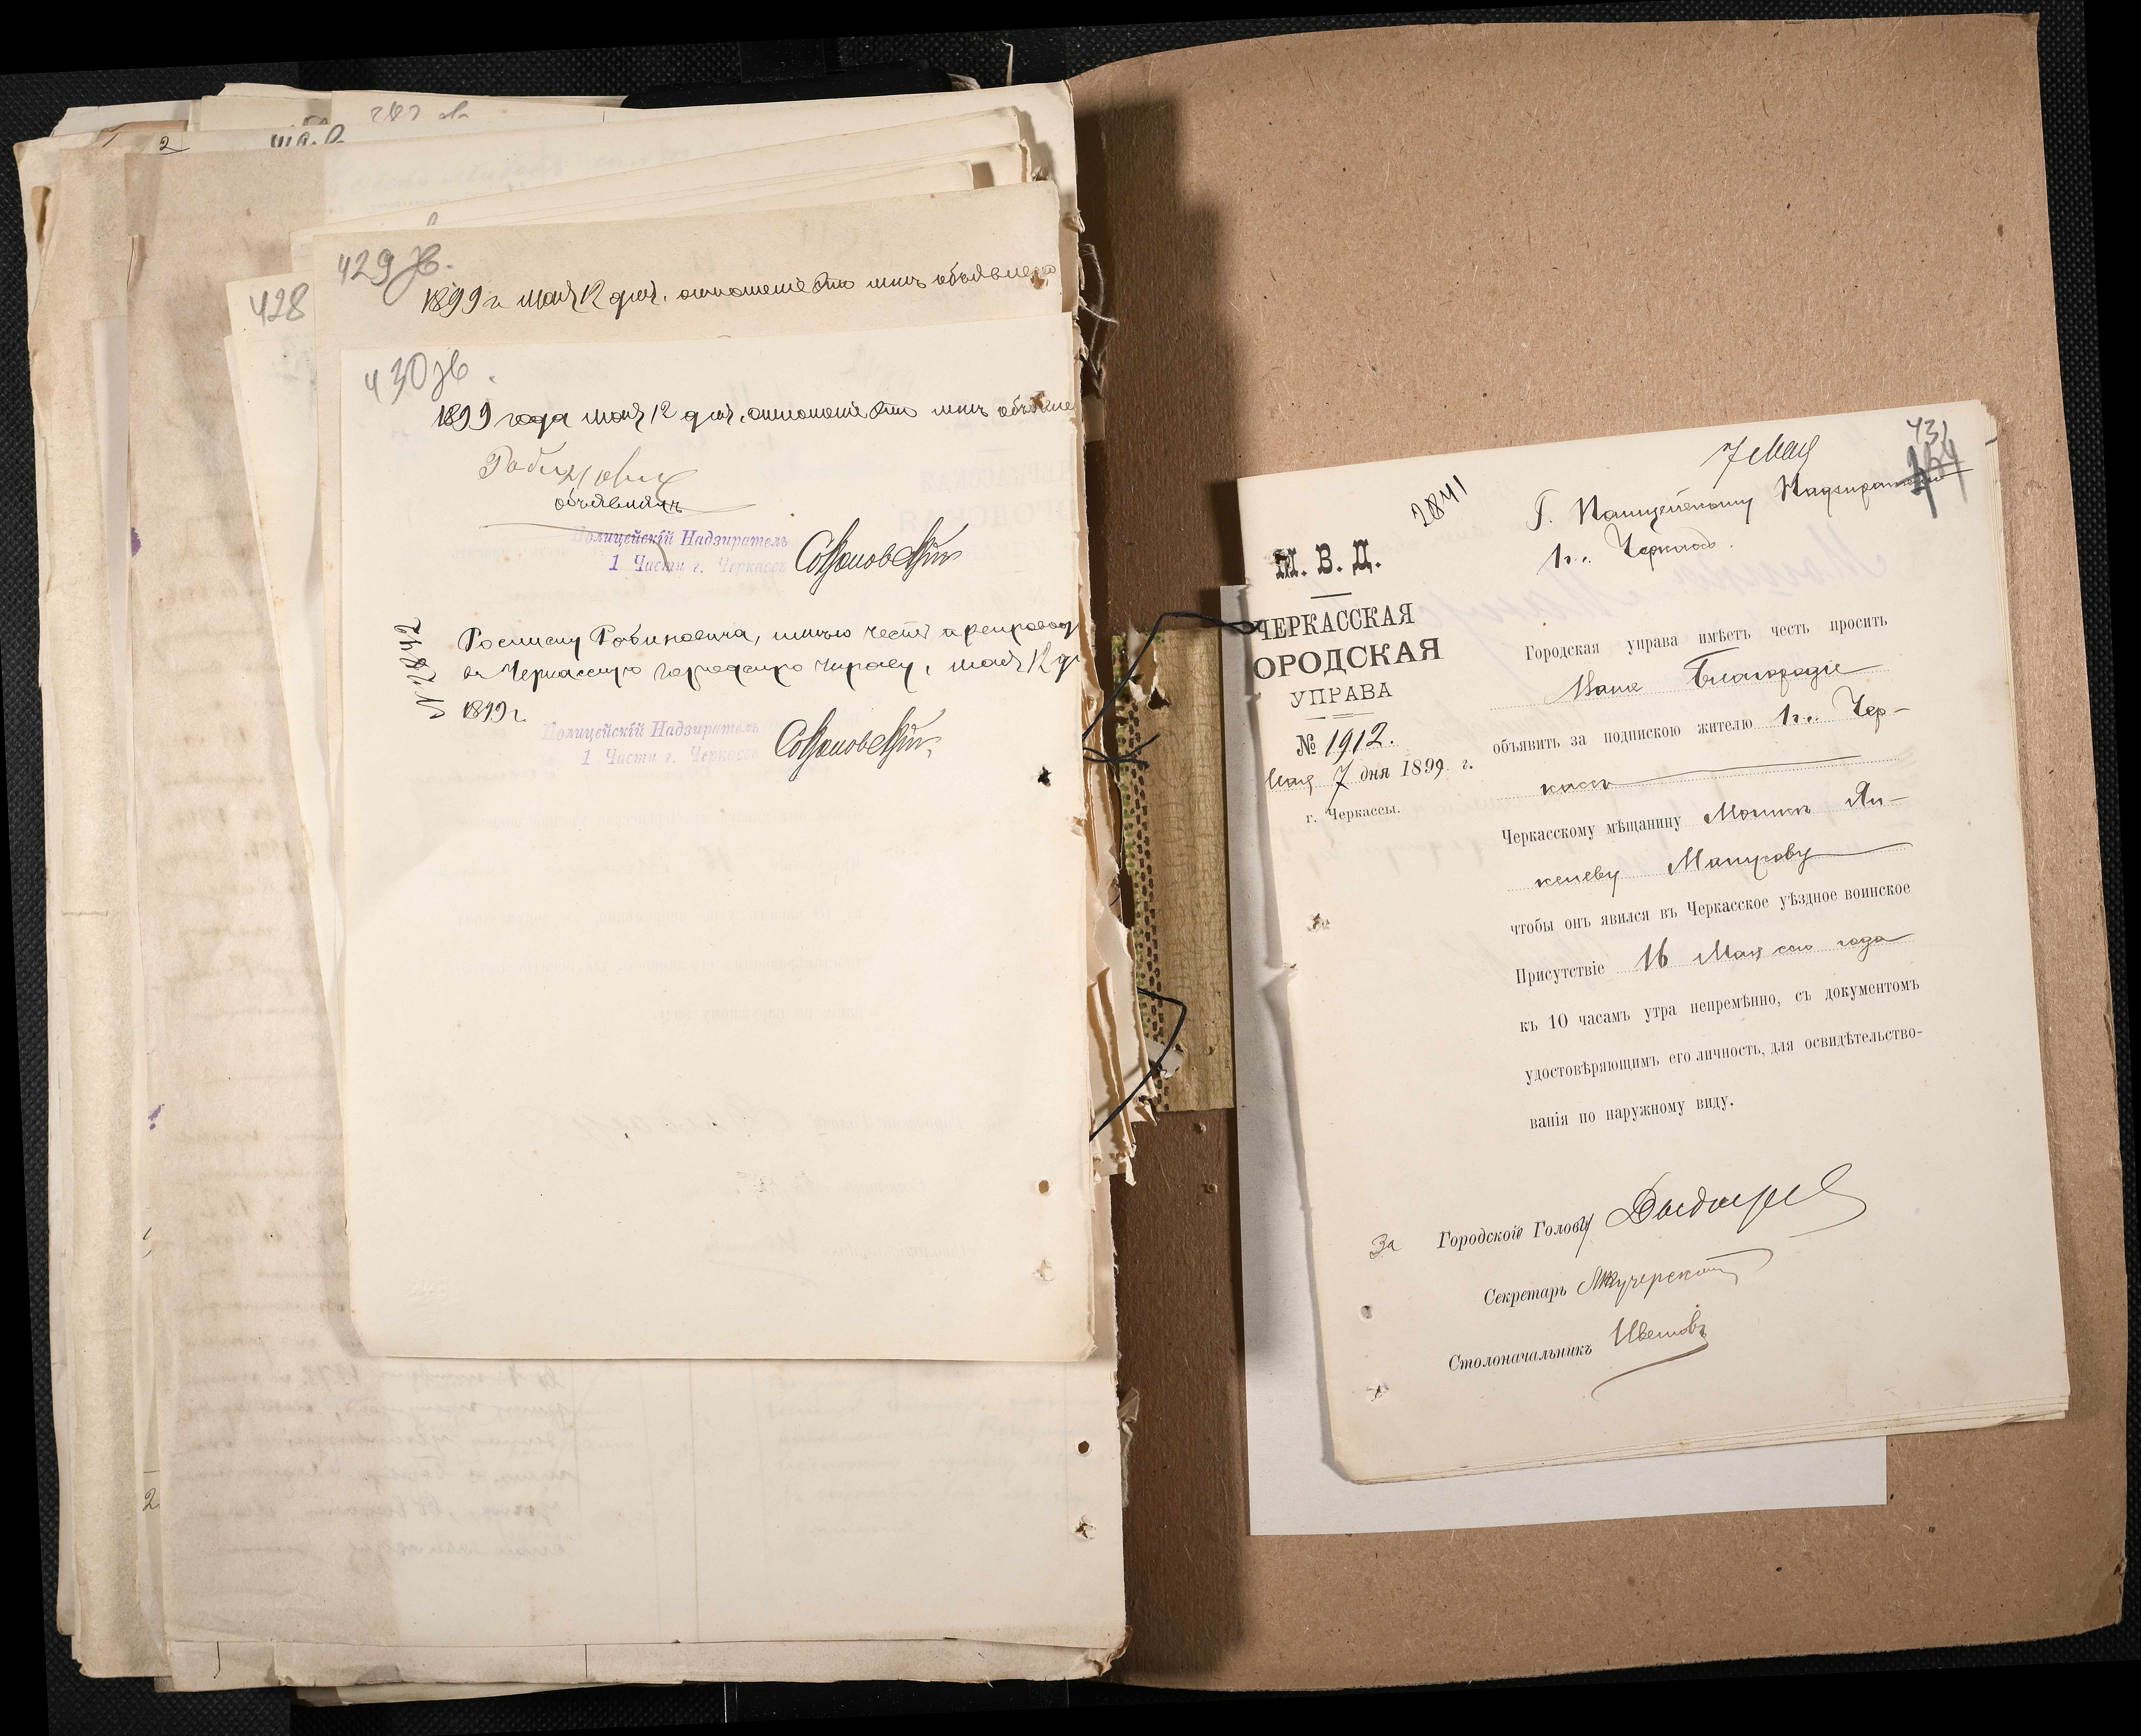 429 зв.
1899 г. мая 12 дня. отношение это мнѣ объявлено
428
430 зв.
1899 года мая 12 дня. отношенie это мнѣ объявле
Рабинович
объявилъ
Полицейскій Надзиратель
1 Части г. Черкассъ
№ 2842
Росписку Рабиновича, имѣю честь препровод
въ Черкасскую городскую управу, мая 12 дн
1899 г.
Полицейскій Надзиратель
1 Части г. Черкассъ
431
7 Мая
2841
Г. Полицейскому Надзирателю
г. Черкассъ.
М. В. Д.
ЧЕРКАССКАЯ
ОРОДСКАЯ
УПРАВА
№ 1912.
Мая 7 дня 1899 г.
г. Черкассы.
Городская управа имѣетъ честь просить
Ваше Благородіе
объявить за подпискою жителю г. Чер-
кассъ
Черкасскому мѣщанину Мошкѣ Ян-
келеву Мануcову
чтобы онъ явился въ Черкасское уѣздное воинское
Присутствіе 16 Мая сего года
къ 10 часамъ утра непремѣнно, съ документомъ
удостовѣряющимъ его личность, для освидѣтельство-
ванія по наружному виду.
За Городской Голову
Секретарь
Столоначальникъ Цвѣтовъ